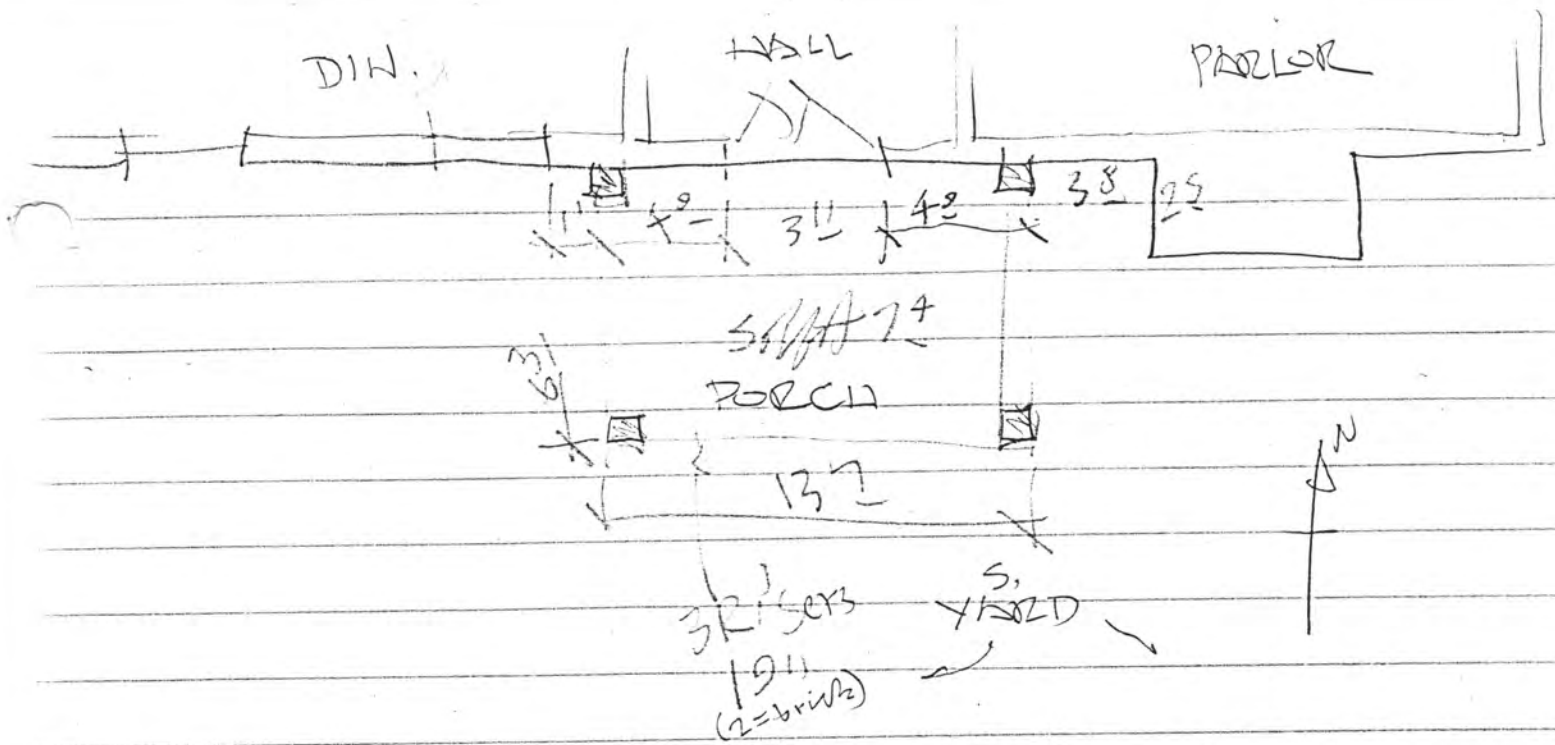 DIN.
HALL
PARLOR
1'
4 9
3 11
4 8
3 8
2 5
7 4
6 3
PORCH
13 7
N
3 Risers
S.
YARD
19"
(2=brick)